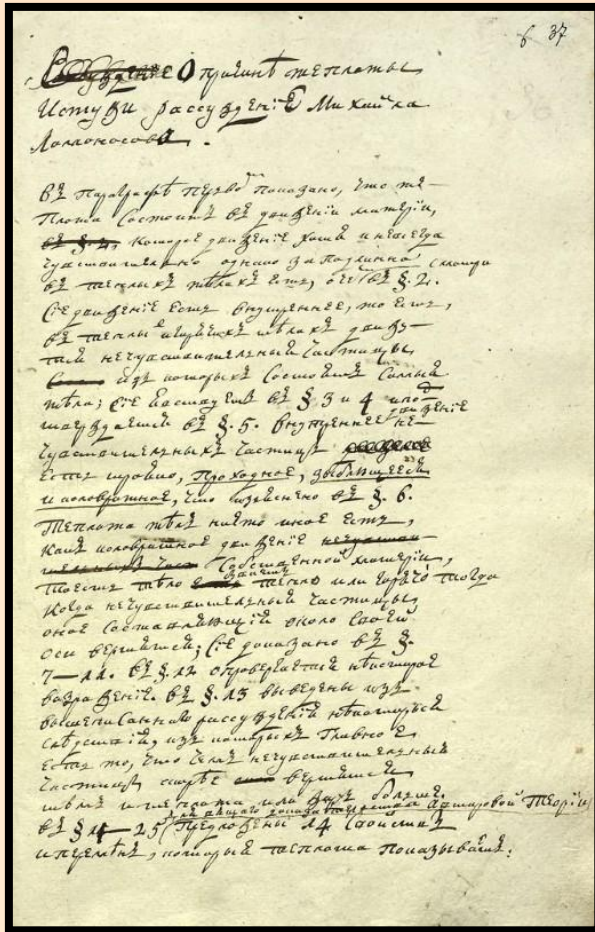 6 37
О причинѣ теплоты
и стужи рассужденіе Михайла
Ломоносова.
Въ параграфѣ первомъ показано, что те-
плота состоитъ въ движеніи матеріи,
которое движеніе хотя и не всегда
чувствительно однако заподлинно
въ теплыхъ тѣлахъ есть, въ §. 2.
Сіе движеніе есть внутреннее, то есть,
въ теплыхъ и горячихъ тѣлахъ движу-
тся нечувствительныя частицы,
изъ которыхъ состоятъ самыя
тѣла; сіе въ § 3 и 4
въ §. 5. внутреннее движеніе не-
чувствительныхъ частицъ
есть тройно, проходное, зыблющееся
и коловратное, что изъяснено въ §. 6.
Теплота тѣлъ ничто иное есть,
какъ коловратное движеніе
собственной матеріи,
то есть тѣло тепло или горячо тогда
когда нечувствительныя частицы,
оное составляющія около своей
оси вертятся; сіе доказано въ §.
7—11. въ §. 12 опровергается нѣкоторое
возраженіе. въ §. 13 выведены изъ
вышеписаннаго рассужденія нѣкоторыя
слѣдствія, изъ которыхъ главное
есть то, что чемъ нечувствительныя
частицы скорѣе вертятся
тѣмъ и теплота должна быть больше.
въ § 14—25 предложены 14 свойствъ
авторовой теоріи
и перемѣнъ, которыя теплота показываетъ.